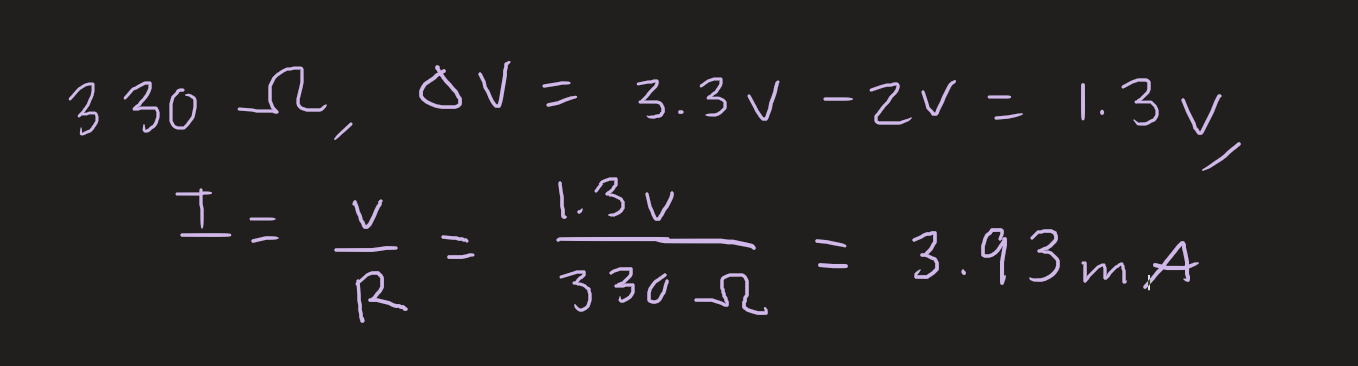 330 Ω, ΔV = 3.3V - 2V = 1.3V,
I = V/R = 1.3V/330Ω = 3.93mA